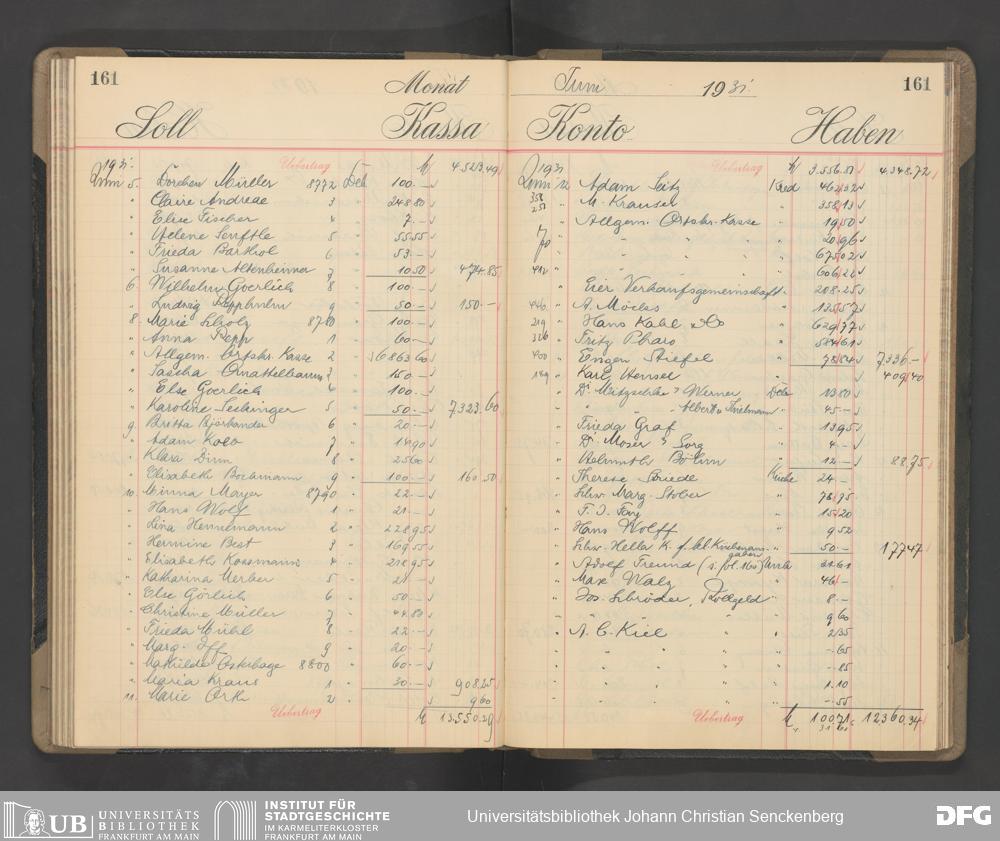 161 Monat Juni 1931. 161
Soll Kassa Konto Haben
1931. Uebertrag M 4523.49
Juni 5. Dorchen Müller 8772 Deb 100.—
" Claire Andreae 3 " 248.80
" Elise Fischer 4 " 7.—
" Helene Senftle 5 " 55.55
" Frieda Barthol 6 " 53.—
" Susanne Altenheimer 7 " 10.50 474.85
6. Wilhelm Goerlich 8 " 100.—
" Ludwig 9 " 50.— 150.—
8. Marie Scholz 8780 " 100.—
" Anna Depp 1 " 60.—
" Allgem. Ortskr. Kasse 2 " 6863.60
" Sascha 3 " 150.—
" Else Goerlich " 100.—
" Karoline 5 " 50.— 7323.60
9. Britta 6 " 20.—
" Adam Kolb 7 " 14.90
" Klara Dirm 8 " 25.60
" Elisabeth Bochmann 9 " 100.— 160.50
10. Minna Mayer 8790 " 22.—
" Hans Wolf 1 " 21.—
" Lina Hennemann 2 " 228.95
" Hermine Best 3 " 169.55
" Elisabeth Kossmann 4 " 218.95
" Katharina Merker 5 " 21.—
" Else Görlich 6 " 50.—
" Christine Müller 7 " 44.80
" Frieda Mühl 8 " 22.—
" Marg. Iff 9 " 20.—
" Mathilde Osterhage 8800 " 60.—
" Maria Kraus 1 " 30.— 908.25
11. Marie Orth 2 " 9.60
Uebertrag M 13.550.29
1931 Uebertrag M 3.556.51 4.348.72
Juni Adam Seitz Kred 462.32
358 251 " M. Krausel " 358.13
" Allgem. Ortskr. Kasse " 19.50
" " " " 20.96
70 " " " " 675.02
412 " " " " 606.22
" Eier Verkaufsgemeinschaft " 208.25
446 " A. Möcles " 125.57
219 " Hans Kahl & Co " 629.77
326 " Fritz Pharo " 584.61
400 " Eugen Stiefel " 78.84 7336.—
189 " Karl Hensel " 409.40
" Dr. Mitzschke & Werner Deb 13.80
" " Albert v. Thielmann " 45.—
" Frieda Graf " 13.95
" Dr. Moser & Sorg " 4.—
" Helmuth Böhm " 12.— 88.75
" Therese Friede Küche 24.—
" Schw. Marg. Stober " 78.75
" F. J. Fay " 15.20
" Hans Wolff " 9.52
" Schw. Hella K. f. kl. Küchenausgaben " 50.— 177.47
" Adolf Freund (s. fol. 160) Unk 31.61
" Max Walz " 46.—
" Jos. Schröder, Rollgeld " 8.—
" " " 9.60
" A. C. Kiel " 2.35
" " " " —.65
" " " " —.85
" " " " 1.10
" " " " —.55
Uebertrag M 100.71 12360.34
31.61
UB UNIVERSITÄTS
BIBLIOTHEK
FRANKFURT AM MAIN
INSTITUT FÜR
STADTGESCHICHTE
IM KARMELITERKLOSTER
FRANKFURT AM MAIN
Universitätsbibliothek Johann Christian Senckenberg
DFG